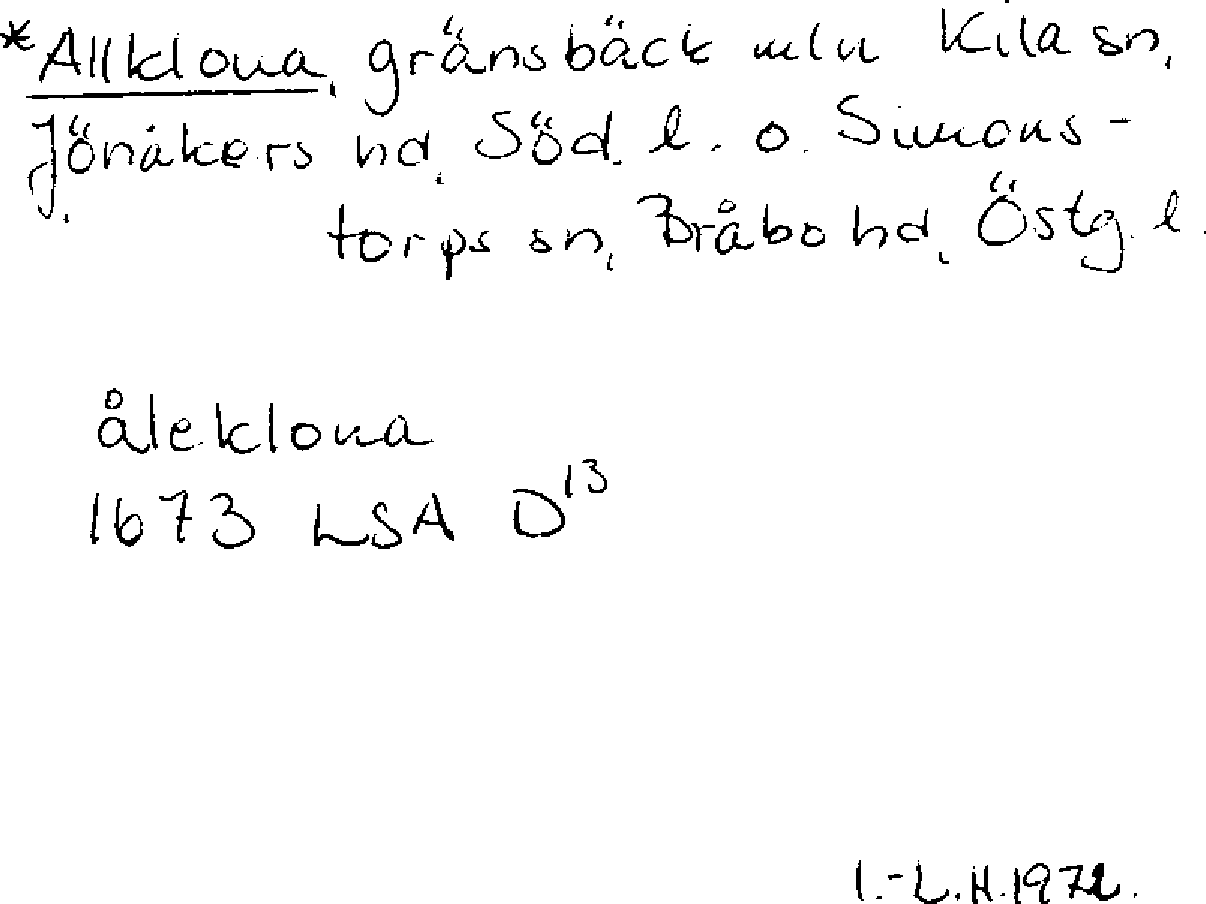 *Allklova, gränsbäck mln Kila sn,
Jönåkers hd, Söd. l. o. Simons-
torps sn, Bråbo hd, Östg. l.
åleklova
1673 LSA D13
I.-L.H.1972.